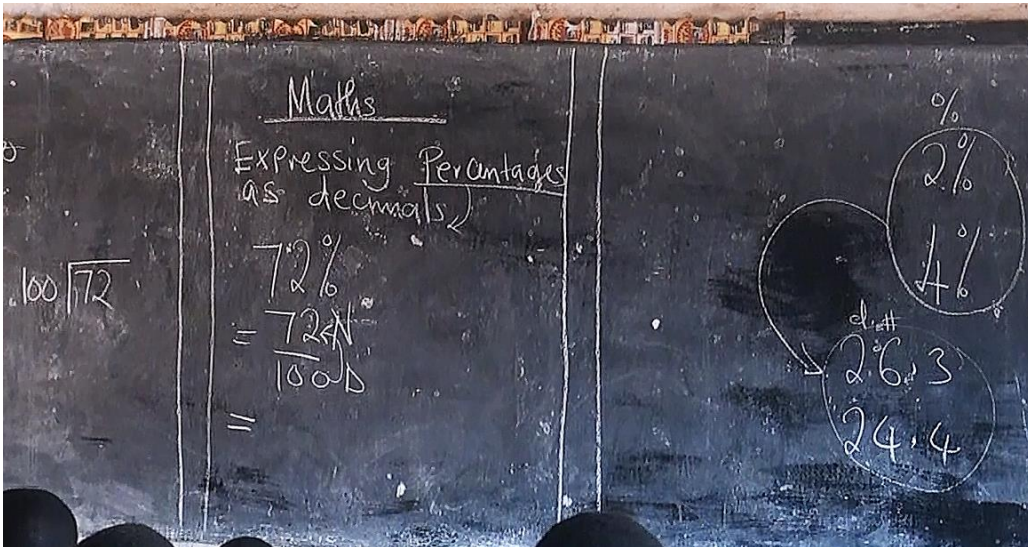 100 72
Maths
Expressing Percentages
as decimals
72%
= 72 N
100 D
=
%
2%
4%
26.3
24.4